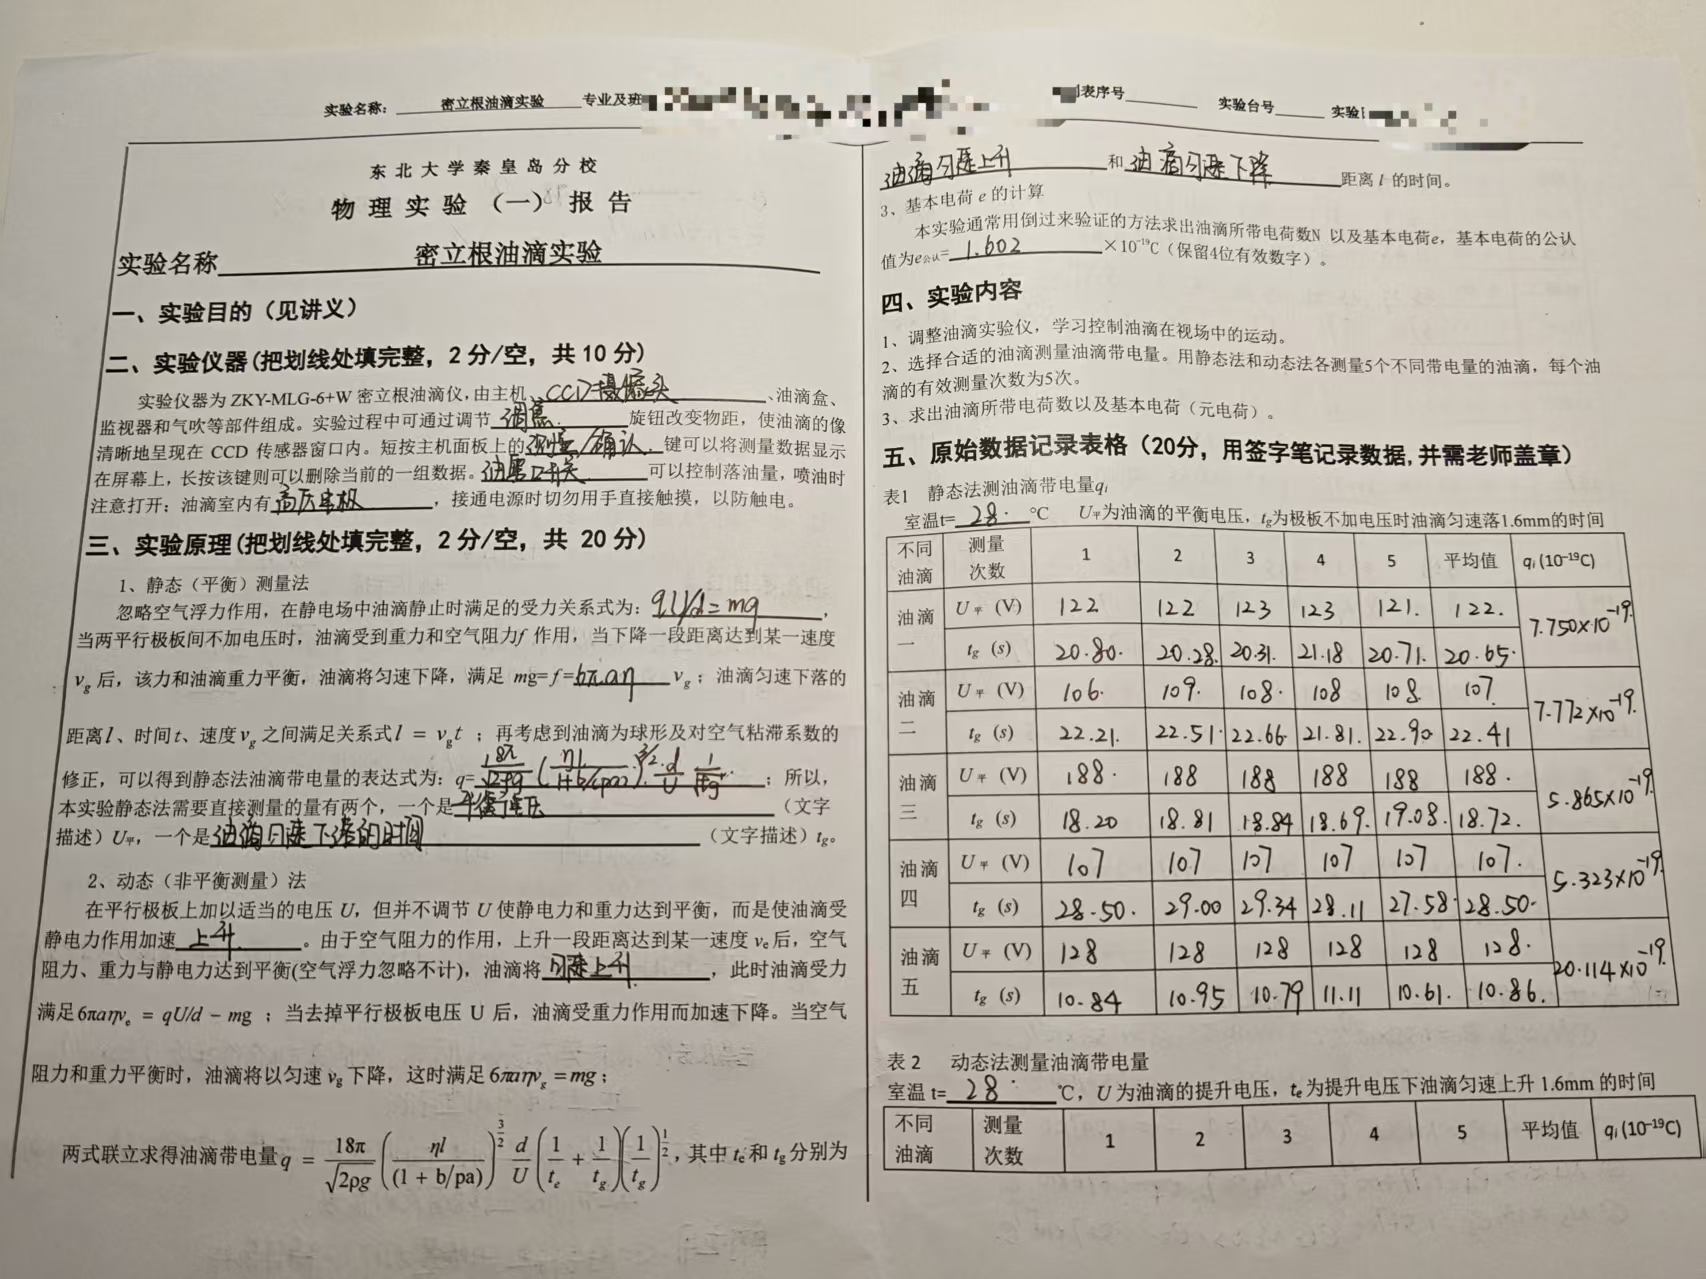 实验名称：密立根油滴实验 专业及班
表序号 实验台号 实验
东北大学秦皇岛分校
物理实验（一）报告
实验名称 密立根油滴实验
一、实验目的（见讲义）
二、实验仪器(把划线处填完整，2分/空，共10分)
实验仪器为 ZKY-MLG-6+W 密立根油滴仪，由主机、CCD摄像头、油滴盒、
监视器和气吹等部件组成。实验过程中可通过调节 调焦 旋钮改变物距，使油滴的像
清晰地呈现在 CCD 传感器窗口内。短按主机面板上的 测量/确认 键可以将测量数据显示
在屏幕上，长按该键则可以删除当前的一组数据。油雾口开关 可以控制落油量，喷油时
注意打开；油滴室内有 高压电极，接通电源时切勿用手直接触摸，以防触电。
三、实验原理(把划线处填完整，2分/空，共 20 分)
1、静态（平衡）测量法
忽略空气浮力作用，在静电场中油滴静止时满足的受力关系式为：qU/d=mg，
当两平行极板间不加电压时，油滴受到重力和空气阻力f 作用，当下降一段距离达到某一速度
vg 后，该力和油滴重力平衡，油滴将匀速下降，满足 mg=f=6πaη vg；油滴匀速下落的
距离l、时间t、速度vg 之间满足关系式l = vgt ；再考虑到油滴为球形及对空气粘滞系数的
修正，可以得到静态法油滴带电量的表达式为：q=18π/√2ρg (ηl/1+b/(pa))^3/2 · d/U · 1/√tg³；所以，
本实验静态法需要直接测量的量有两个，一个是 平衡电压（文字
描述）U平，一个是 油滴匀速下落的时间（文字描述）tg。
2、动态（非平衡测量）法
在平行极板上加以适当的电压 U，但并不调节 U 使静电力和重力达到平衡，而是使油滴受
静电力作用加速 上升。由于空气阻力的作用，上升一段距离达到某一速度 ve 后，空气
阻力、重力与静电力达到平衡(空气浮力忽略不计)，油滴将 匀速上升，此时油滴受力
满足6πaηve = qU/d − mg ；当去掉平行极板电压 U 后，油滴受重力作用而加速下降。当空气
阻力和重力平衡时，油滴将以匀速 vg 下降，这时满足6πaηvg = mg；
两式联立求得油滴带电量 q = 18π/√2ρg (ηl/(1 + b/pa))^3/2 d/U (1/te + 1/tg)(1/tg)^1/2，其中 te和 tg 分别为
油滴匀速上升 和 油滴匀速下降 距离 l 的时间。
3、基本电荷 e 的计算
本实验通常用倒过来验证的方法求出油滴所带电荷数N 以及基本电荷e，基本电荷的公认
值为e公认= 1.602 ×10⁻¹⁹C（保留4位有效数字）。
四、实验内容
1、调整油滴实验仪，学习控制油滴在视场中的运动。
2、选择合适的油滴测量油滴带电量。用静态法和动态法各测量5个不同带电量的油滴，每个油
滴的有效测量次数为5次。
3、求出油滴所带电荷数以及基本电荷（元电荷）。
五、原始数据记录表格（20分，用签字笔记录数据,并需老师盖章）
表1 静态法测油滴带电量qi
室温t= 28. ℃ U平为油滴的平衡电压，tg为极板不加电压时油滴匀速落1.6mm的时间
不同油滴 测量次数 1 2 3 4 5 平均值 qi (10⁻¹⁹C)
油滴一 U平 (V) 122 122 123 123 121. 122. 7.750×10⁻¹⁹.
tg (s) 20.80. 20.28. 20.31. 21.18 20.71. 20.65.
油滴二 U平 (V) 106. 109. 108. 108 108. 107. 7.772×10⁻¹⁹.
tg (s) 22.21. 22.51. 22.66 21.81. 22.90 22.41
油滴三 U平 (V) 188. 188 188 188 188 188. 5.865×10⁻¹⁹.
tg (s) 18.20 18.81 18.84 18.69. 19.08. 18.72.
油滴四 U平 (V) 107 107 107 107 107 107. 5.323×10⁻¹⁹.
tg (s) 28.50. 29.00 29.34 28.11 27.58. 28.50.
油滴五 U平 (V) 128 128 128 128 128 128. 20.114×10⁻¹⁹.
tg (s) 10.84 10.95 10.79 11.11 10.61. 10.86.
表 2 动态法测量油滴带电量
室温 t= 28. ℃，U 为油滴的提升电压，te 为提升电压下油滴匀速上升 1.6mm 的时间
不同油滴 测量次数 1 2 3 4 5 平均值 qi (10⁻¹⁹C)